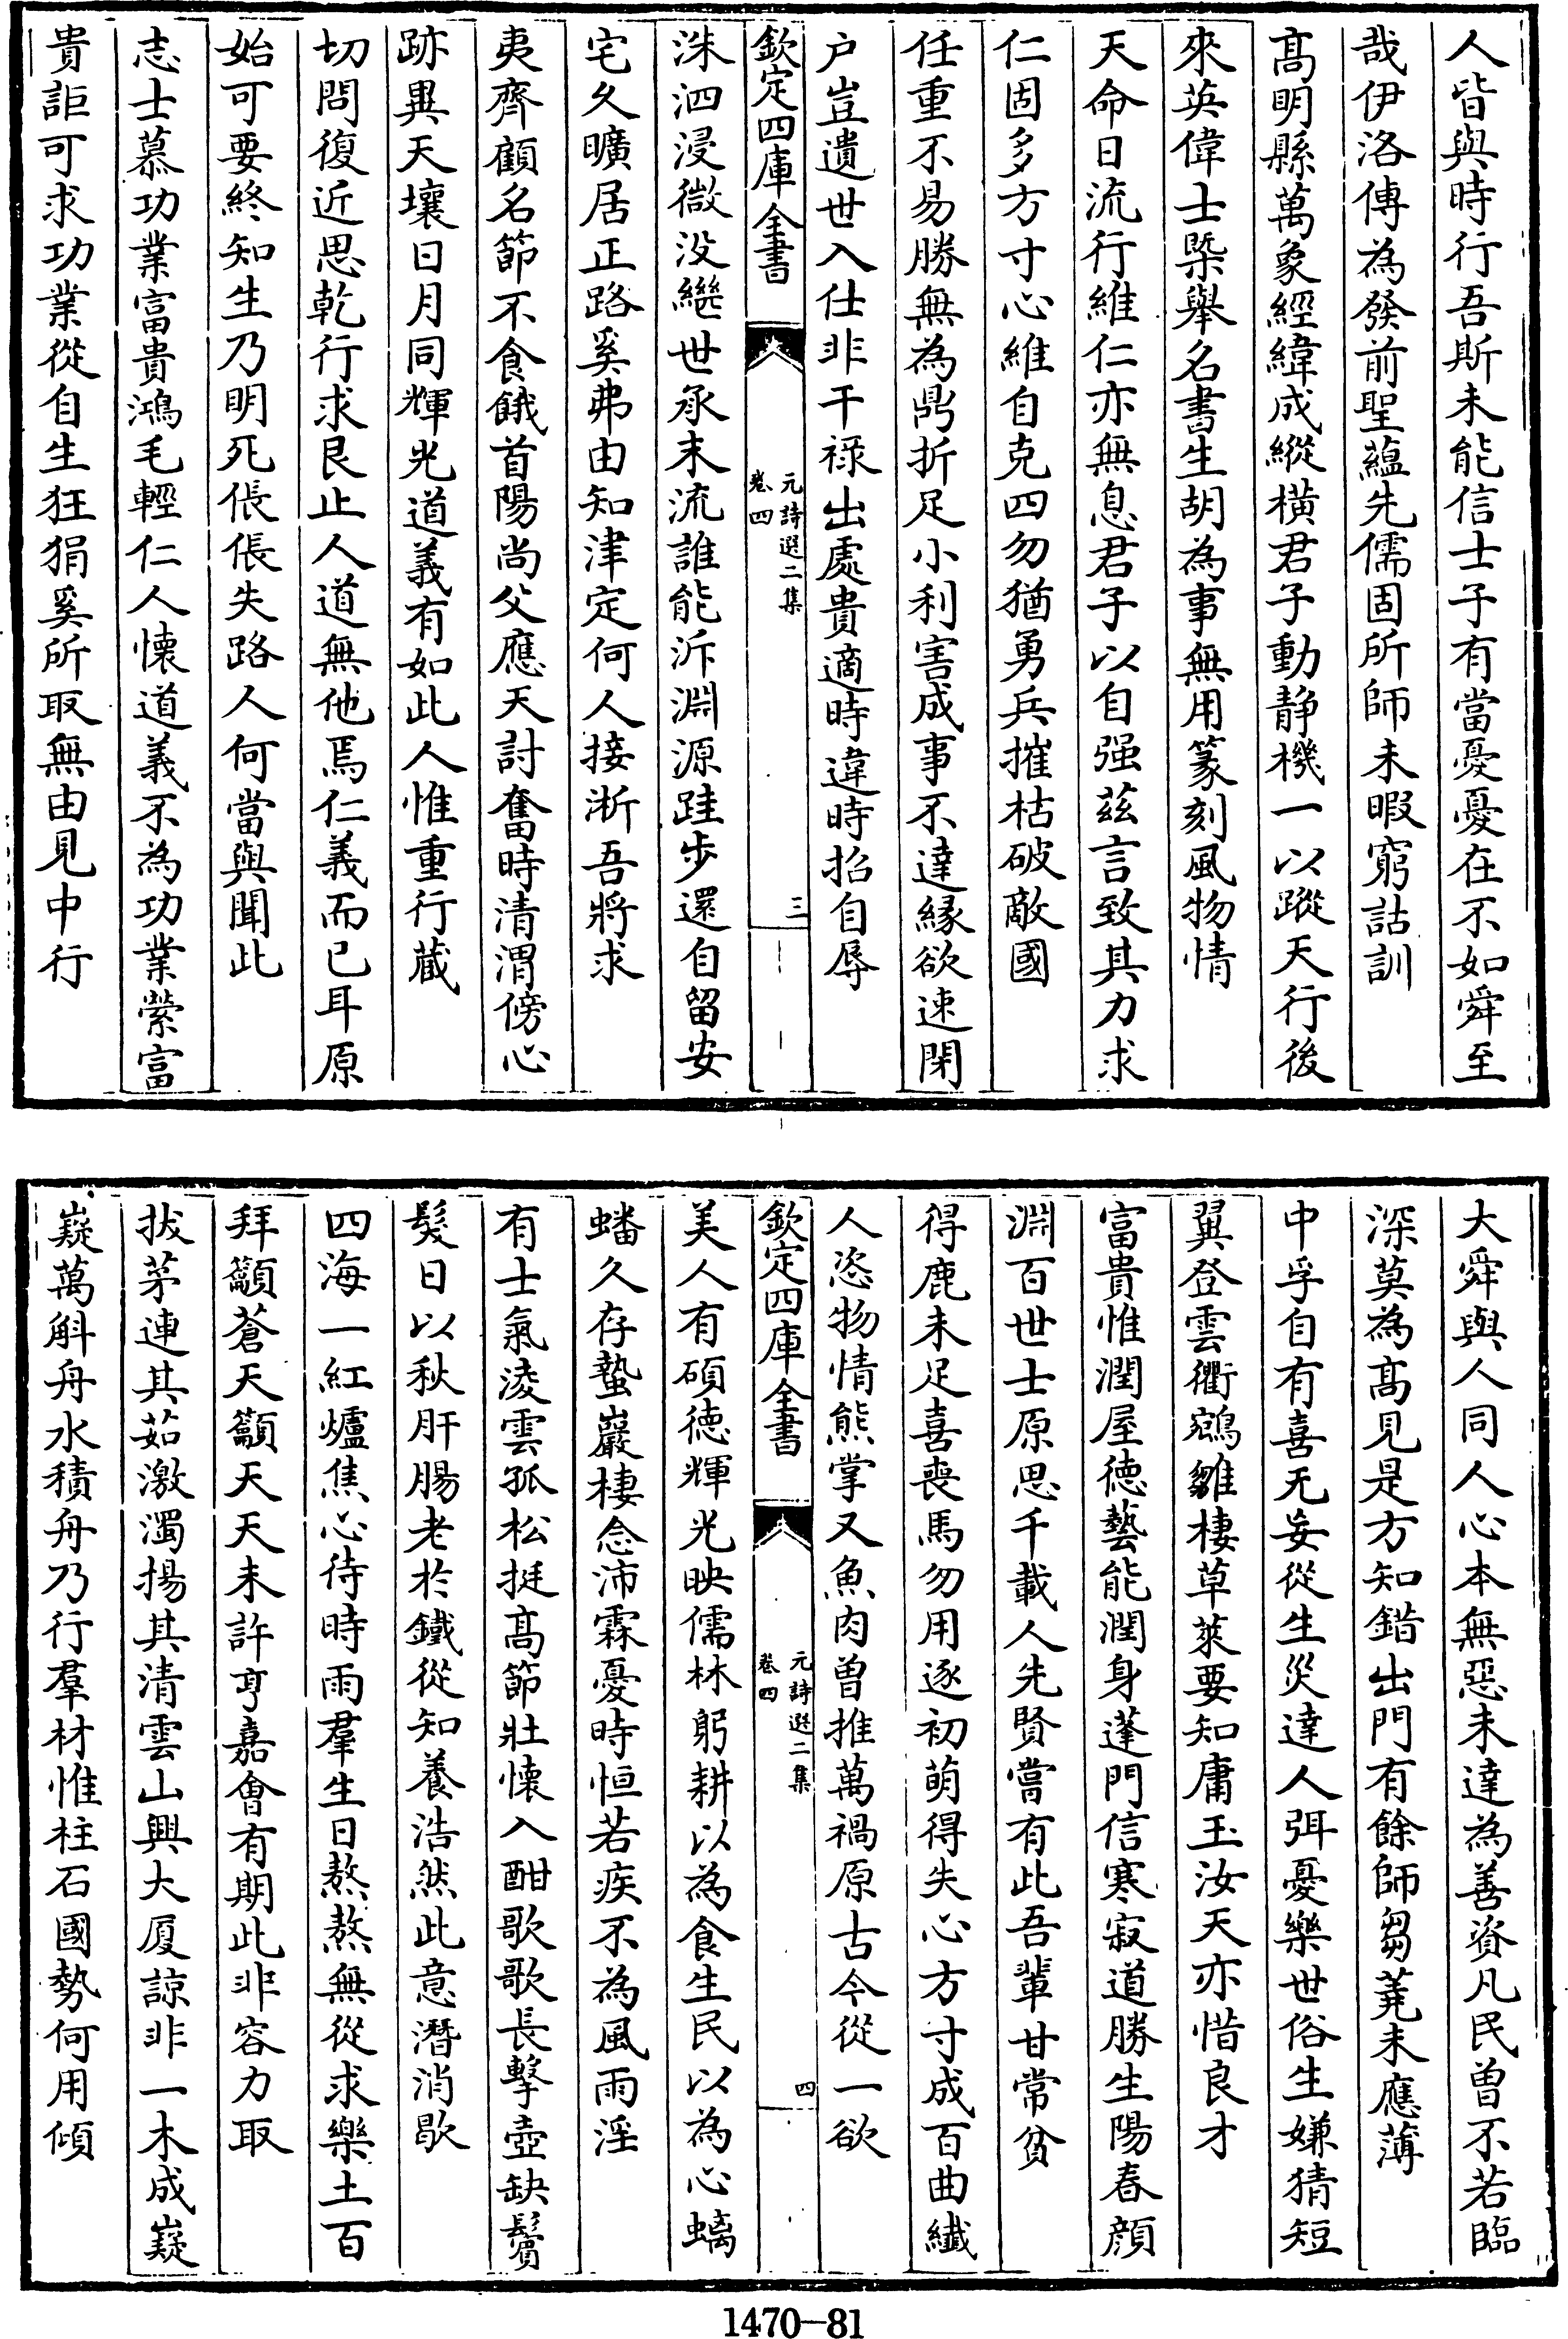 人皆與時行吾斯未能信士子有當憂憂在不如舜至
哉伊洛傳為發前聖蘊先儒固所師未暇窮詁訓
髙明縣萬象經緯成縱橫君子動静機一以蹤天行後
來英偉士槩舉名書生胡為事無用篆刻風物情
天命日流行維仁亦無息君子以自强兹言致其力求
仁固多方寸心維自克四勿猶勇兵摧枯破敵國
任重不易勝無為鼎折足小利害成事不達緣欲速閉
户豈遺世入仕非干禄出處貴適時違時招自辱
欽定四庫全書
元詩選二集
卷四
三
洙泗浸微没繼世承末流誰能泝淵源跬步還自留安
宅久曠居正路奚弗由知津定何人接淅吾將求
夷齊顧名節不食餓首陽尚父應天討奮時清渭傍心
跡異天壤日月同輝光道義有如此人惟重行藏
切問復近思乾行求艮止人道無他焉仁義而已耳原
始可要終知生乃明死倀倀失路人何當與聞此
志士慕功業富貴鴻毛輕仁人懷道義不為功業縈富
貴詎可求功業從自生狂狷奚所取無由見中行
大舜與人同人心本無惡未達為善資凡民曽不若臨
深莫為髙見是方知錯出門有餘師芻蕘未應薄
中孚自有喜无妄從生災達人弭憂樂世俗生嫌猜短
翼登雲衢鵷雛棲草萊要知庸玉汝天亦惜良才
富貴惟潤屋徳藝能潤身蓬門信寒寂道勝生陽春顔
淵百世士原思千載人先賢當有此吾輩甘常貧
得鹿未足喜喪馬勿用逐初萌得失心方寸成百曲纖
人恣物情熊掌又魚肉曽推萬禍原古今從一欲
欽定四庫全書
元詩選二集
卷四
四
美人有碩徳輝光映儒林躬耕以為食生民以為心螭
蟠久存蟄巖棲念沛霖憂時恒若疾不為風雨淫
有士氣淩雲孤松挺髙節壯懷入酣歌歌長擊壺缺鬢
髮日以秋肝腸老於鐵從知養浩然此意潛消歇
四海一紅爐焦心待時雨羣生日熬熬無從求樂土百
拜籲蒼天籲天天未許亨嘉會有期此非容力取
拔茅連其茹激濁揚其清雲山興大厦諒非一木成嶷
嶷萬斛舟水積舟乃行羣材惟柱石國勢何用傾
1470—81